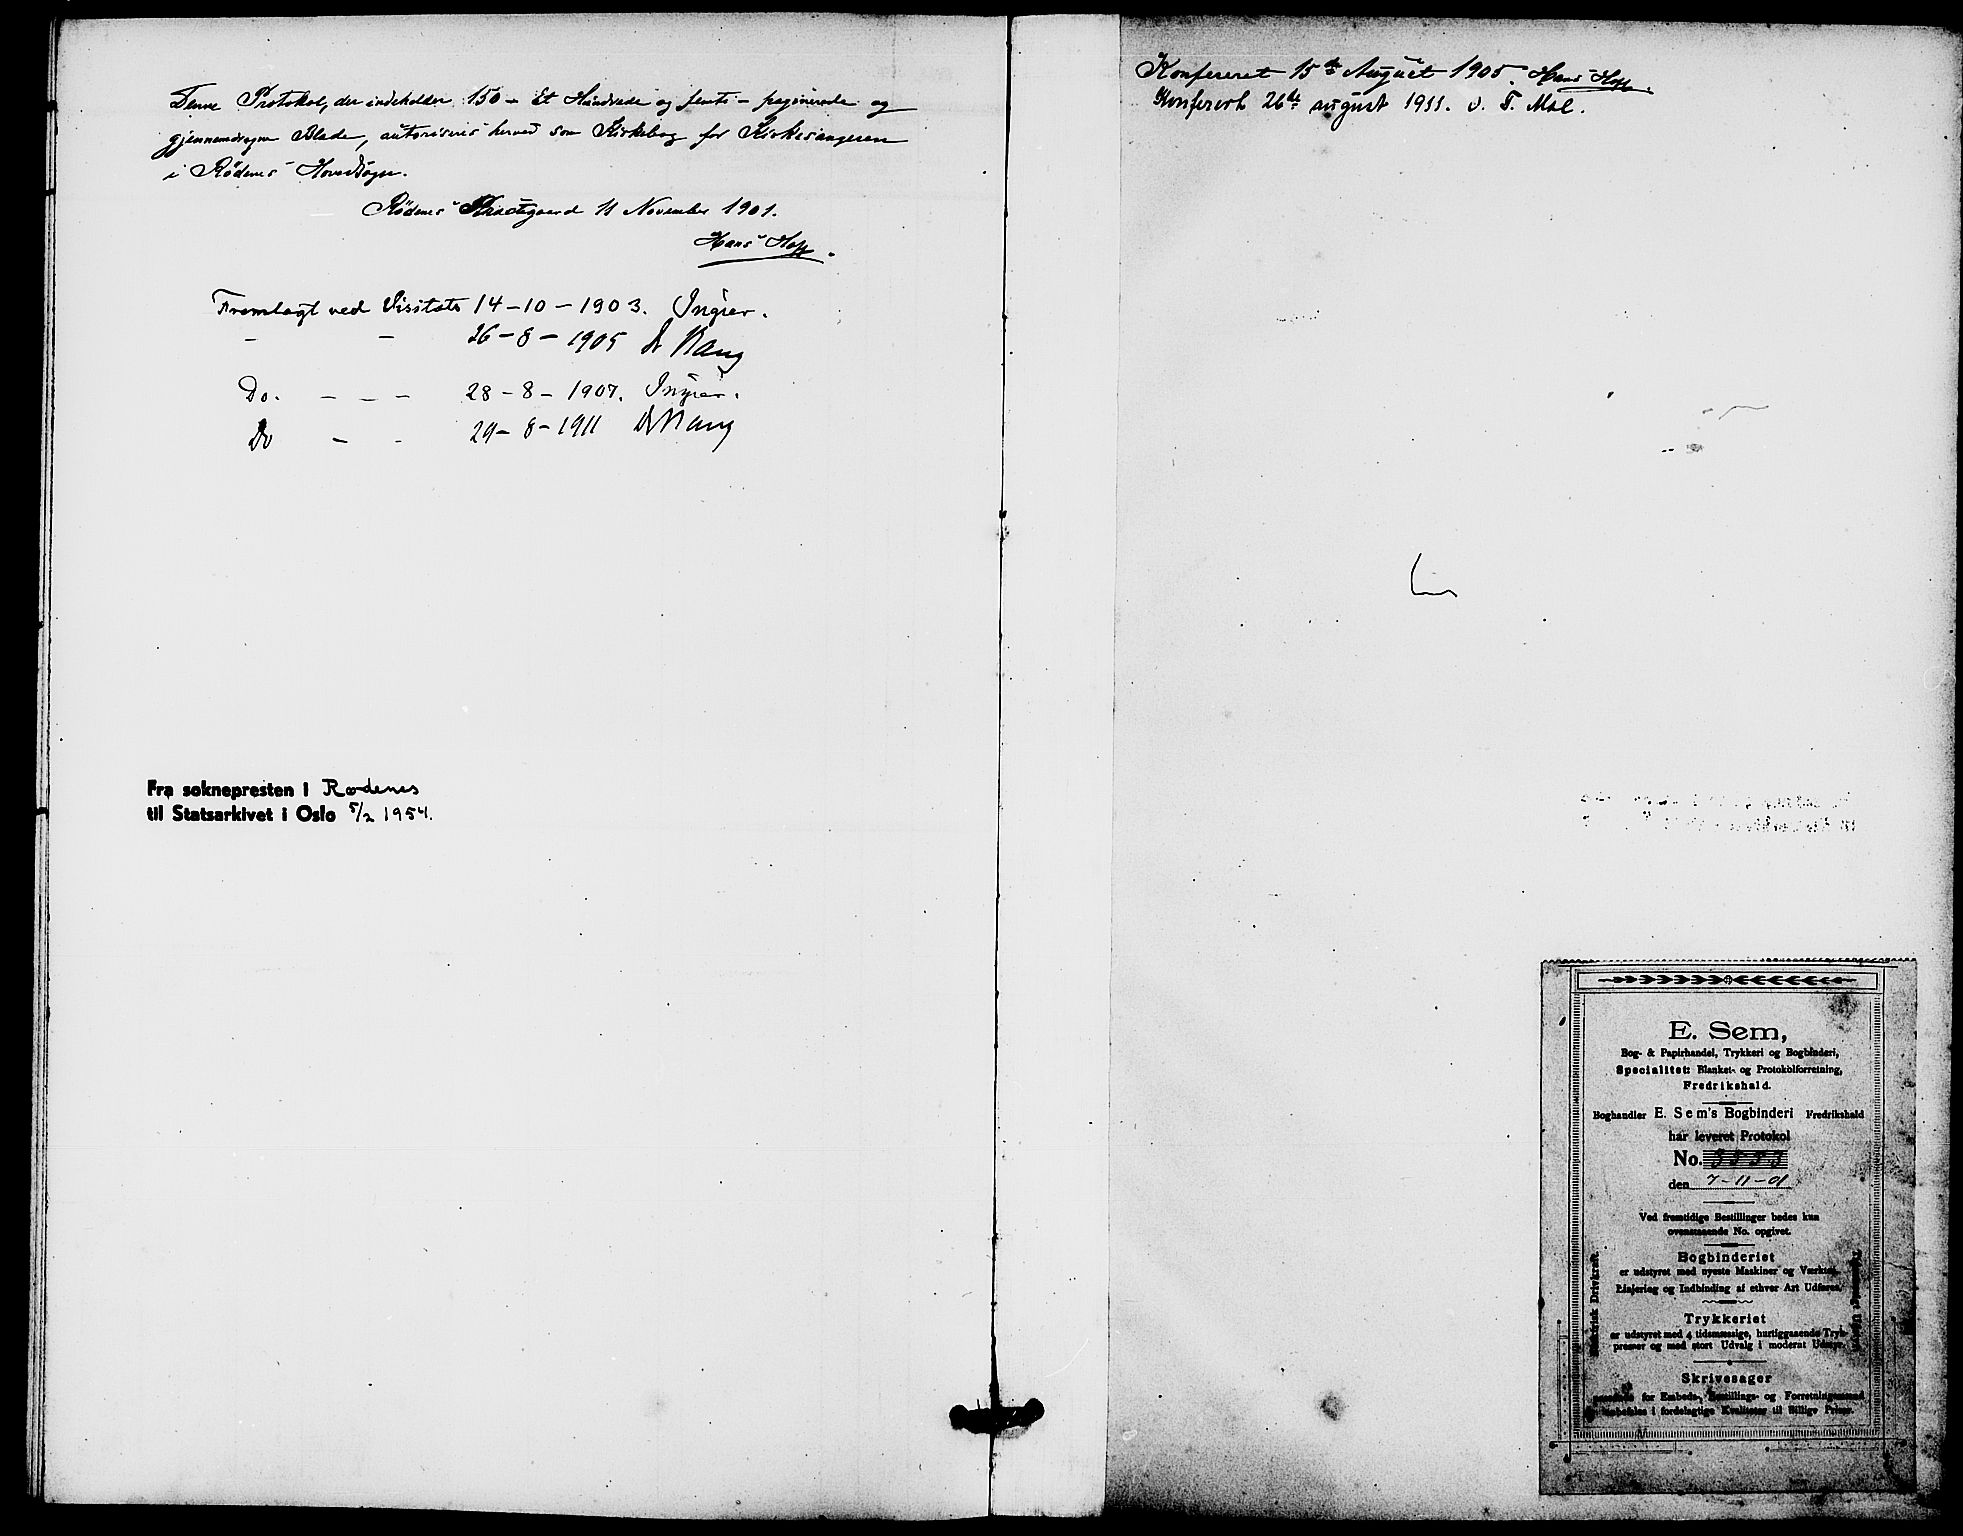 Denne Protokol, der indeholder 150 - Et Hundrede og femti - paginerede og
gjennemdragne Blade, autoriseres herved som Kirkebog for Kirkesangeren
i Rødenes Hovedsogn.
Rødenes Præstegaard 11 November 1901.
Hans Hoff.
Fremlagt ved Visitats 14-10-1903. Ingier.
- - 26-8-1905 A Bang
Do. - - - 28-8-1907. Ingier.
Do - - 29-8-1911 A Bang
Fra soknepresten i Rødenes
til Statsarkivet i Oslo 5/2 1954.
Konfereret 15de August 1905. Hans Hoff.
Konferert 26de august 1911. v. T. Mol.
E. Sem,
Bog- & Papirhandel, Trykkeri og Bogbinderi,
Specialitet: Blanket- og Protokolforretning,
Fredrikshald.
Boghandler E. Sem's Bogbinderi Fredrikshald
har leveret Protokol
No. 3833
den 7-11-01
Ved fremtidige Bestillinger bedes kun
ovenstaaende No. opgivet.
Bogbinderiet
er udstyret med nyeste Maskiner og Værktøi,
Linjering og Indbinding af ethver Art Udføres.
Trykkeriet
er udstyret med 4 tidsmæssige, hurtiggaaende Tryk-
presser og med stort Udvalg i moderat Udstyr.
Skrivesager
for Embeds-, Bestillings- og Forretningsmænd
anbefales i fordelagtige Kvaliteter til Billige Priser.
Elektrisk Drivkraft.